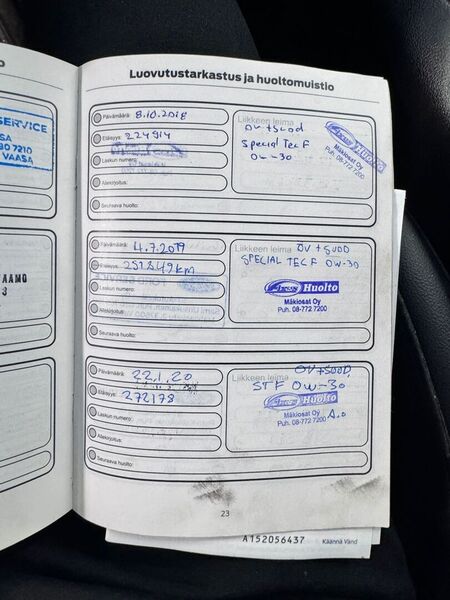 Luovutustarkastus ja huoltomuistio
SERVICE
VAASA
Päivämäärä: 8.10.2018
Etäisyys: 224914
Laskun numero:
Allekirjoitus:
Seuraava huolto:
Liikkeen leima
ÖV + SUOD
Special Tec F
0w-30
Huolto
Mäkiosat Oy
Puh. 08-772 7200
Päivämäärä: 4.7.2019
Etäisyys: 251849 km
Laskun numero:
Allekirjoitus:
Seuraava huolto:
Liikkeen leima ÖV + SUOD
SPECIAL TEC F 0W-30
Huolto
Mäkiosat Oy
Puh. 08-772 7200
Päivämäärä: 22.1.20
Etäisyys: 272178
Laskun numero:
Allekirjoitus:
Seuraava huolto:
Liikkeen leima ÖV+SUOD
STF 0W-30
Huolto
Mäkiosat Oy
Puh. 08-772 7200
23
A152056437 Käännä Vänd